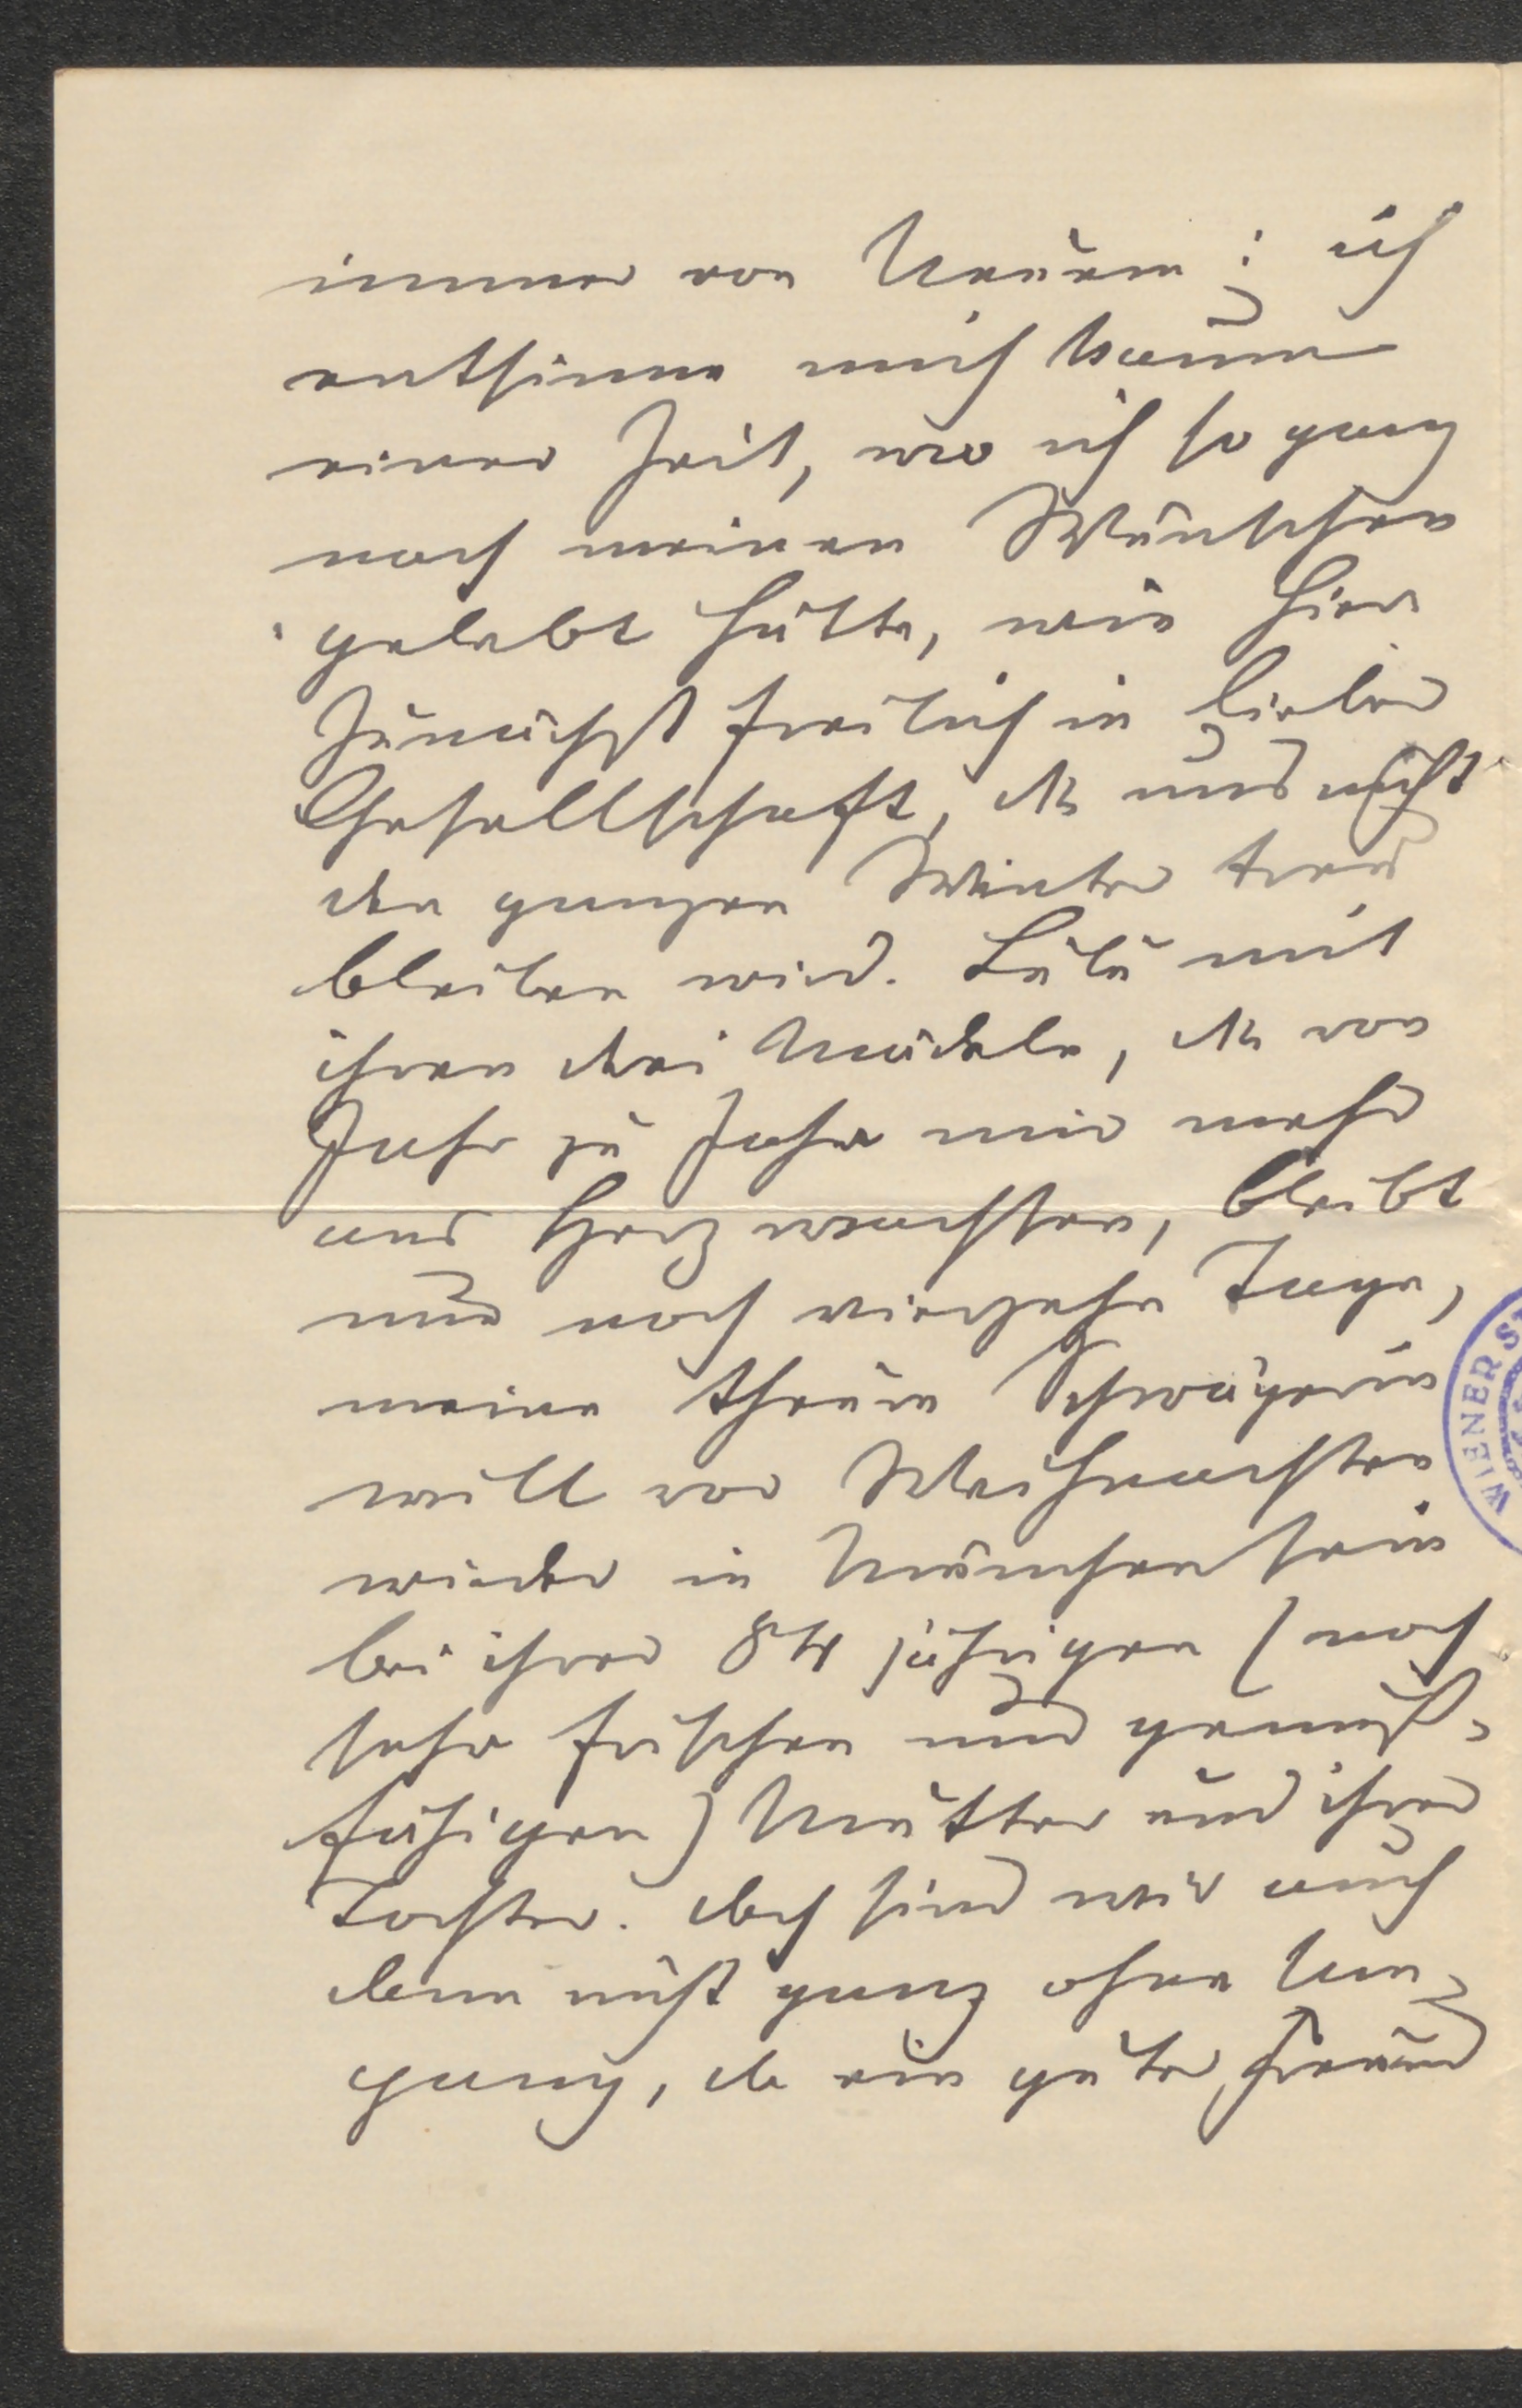 immer von Neuem; ich
entsinne mich kaum
einer Zeit, wo ich so ganz
nach meinen Wünschen
gelebt hätte, wie hier
Zunächst freilich in lieber
Gesellschaft, die uns nicht
den ganzen Winter treu
bleiben wird. Lulu mit
ihren drei Mädeln, die von
Jahr zu Jahr mir mehr
ans Herz wachsen, bleibt
nur noch vierzehn Tage,
meine theure Schwägerin
will vor Weihnachten
wieder in München sein
bei ihrer 84 jährigen (noch
sehr frischen und genuß-
fähigen) Mutter und ihrer
Tochter. Doch sind wir auch
dann nicht ganz ohne Um-
gang, da ein guter Freund
WIENER ST